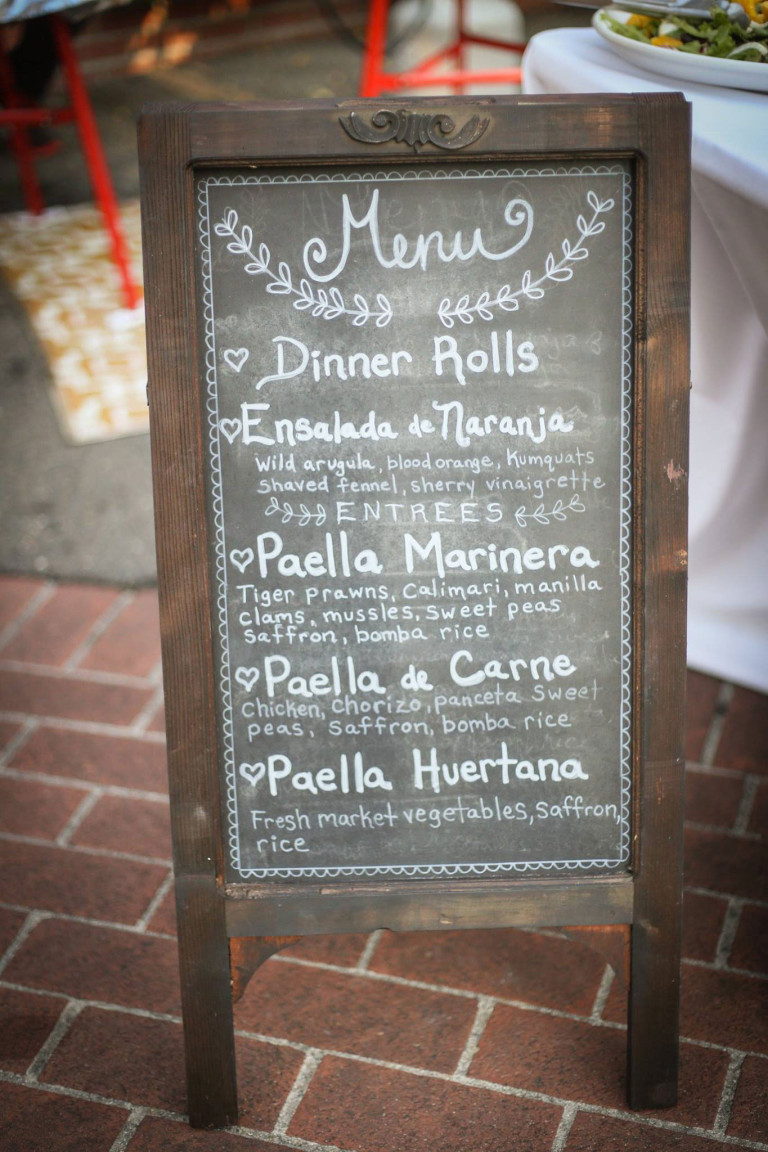 Menu
Dinner Rolls
Ensalada de Naranja
Wild arugula, blood orange, Kumquats
Shaved fennel, sherry vinaigrette
ENTREES
Paella Marinera
Tiger prawns, Calimari, manilla
clams, mussles, sweet peas
Saffron, bomba rice
Paella de Carne
Chicken, Chorizo, panceta Sweet
peas, Saffron, bomba rice
Paella Huertana
Fresh market vegetables, Saffron,
rice